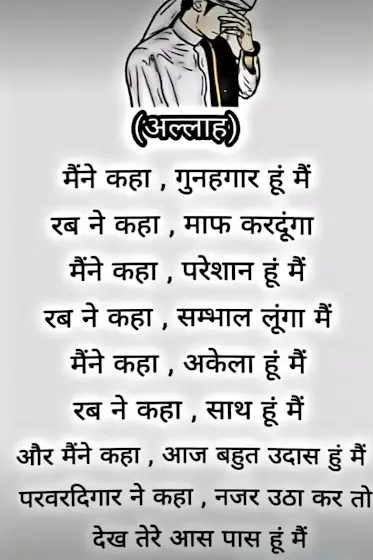 (अल्लाह)
मैंने कहा , गुनहगार हूं मैं
रब ने कहा , माफ करदूंगा
मैंने कहा , परेशान हूं मैं
रब ने कहा , सम्भाल लूंगा मैं
मैंने कहा , अकेला हूं मैं
रब ने कहा , साथ हूं मैं
और मैंने कहा , आज बहुत उदास हुं मैं
परवरदिगार ने कहा , नजर उठा कर तो
देख तेरे आस पास हूं मैं